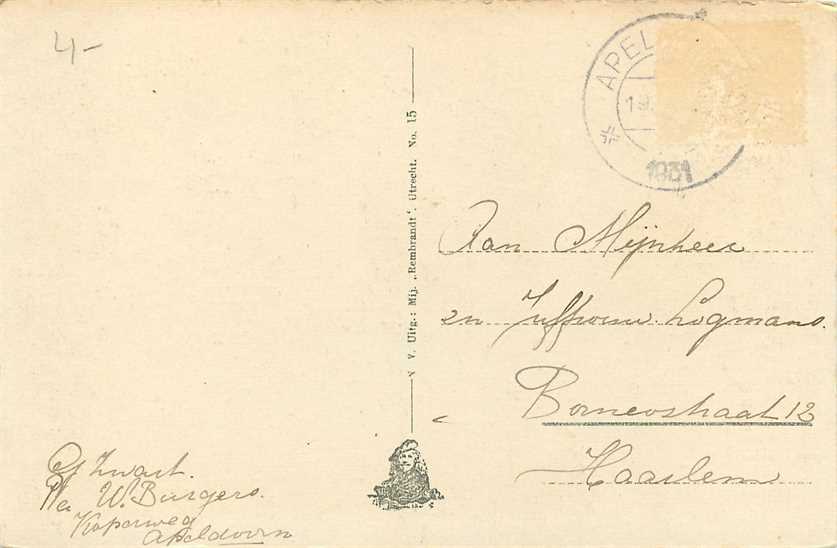 4-
APEL
19
1931
V. V. Uitg.: Mij. „Rembrandt". Utrecht. No. 15
Aan Mijnheer
en Juffrouw Logmans.
Borneostraat 12
Haarlem
Zwart.
W. Burgers.
Apeldoorn